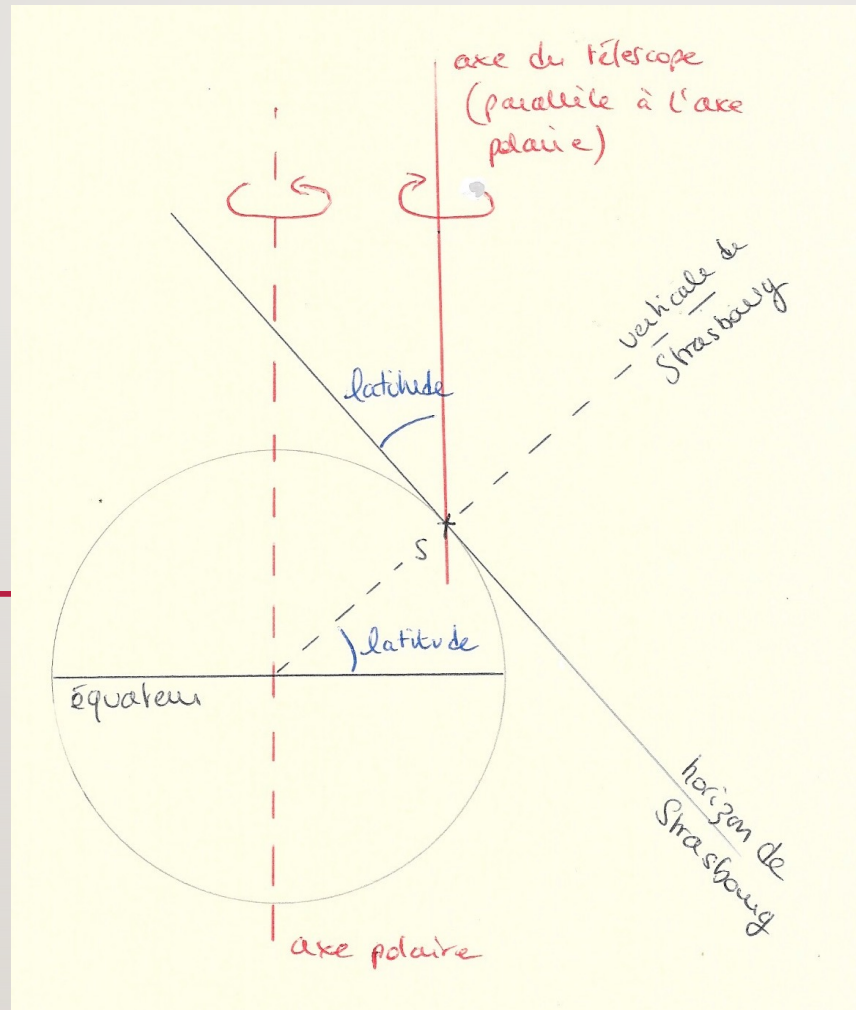 axe du télescope
(parallèle à l'axe
polaire)
verticale de
Strasbourg
latitude
S
latitude
équateur
horizon de
Strasbourg
axe polaire